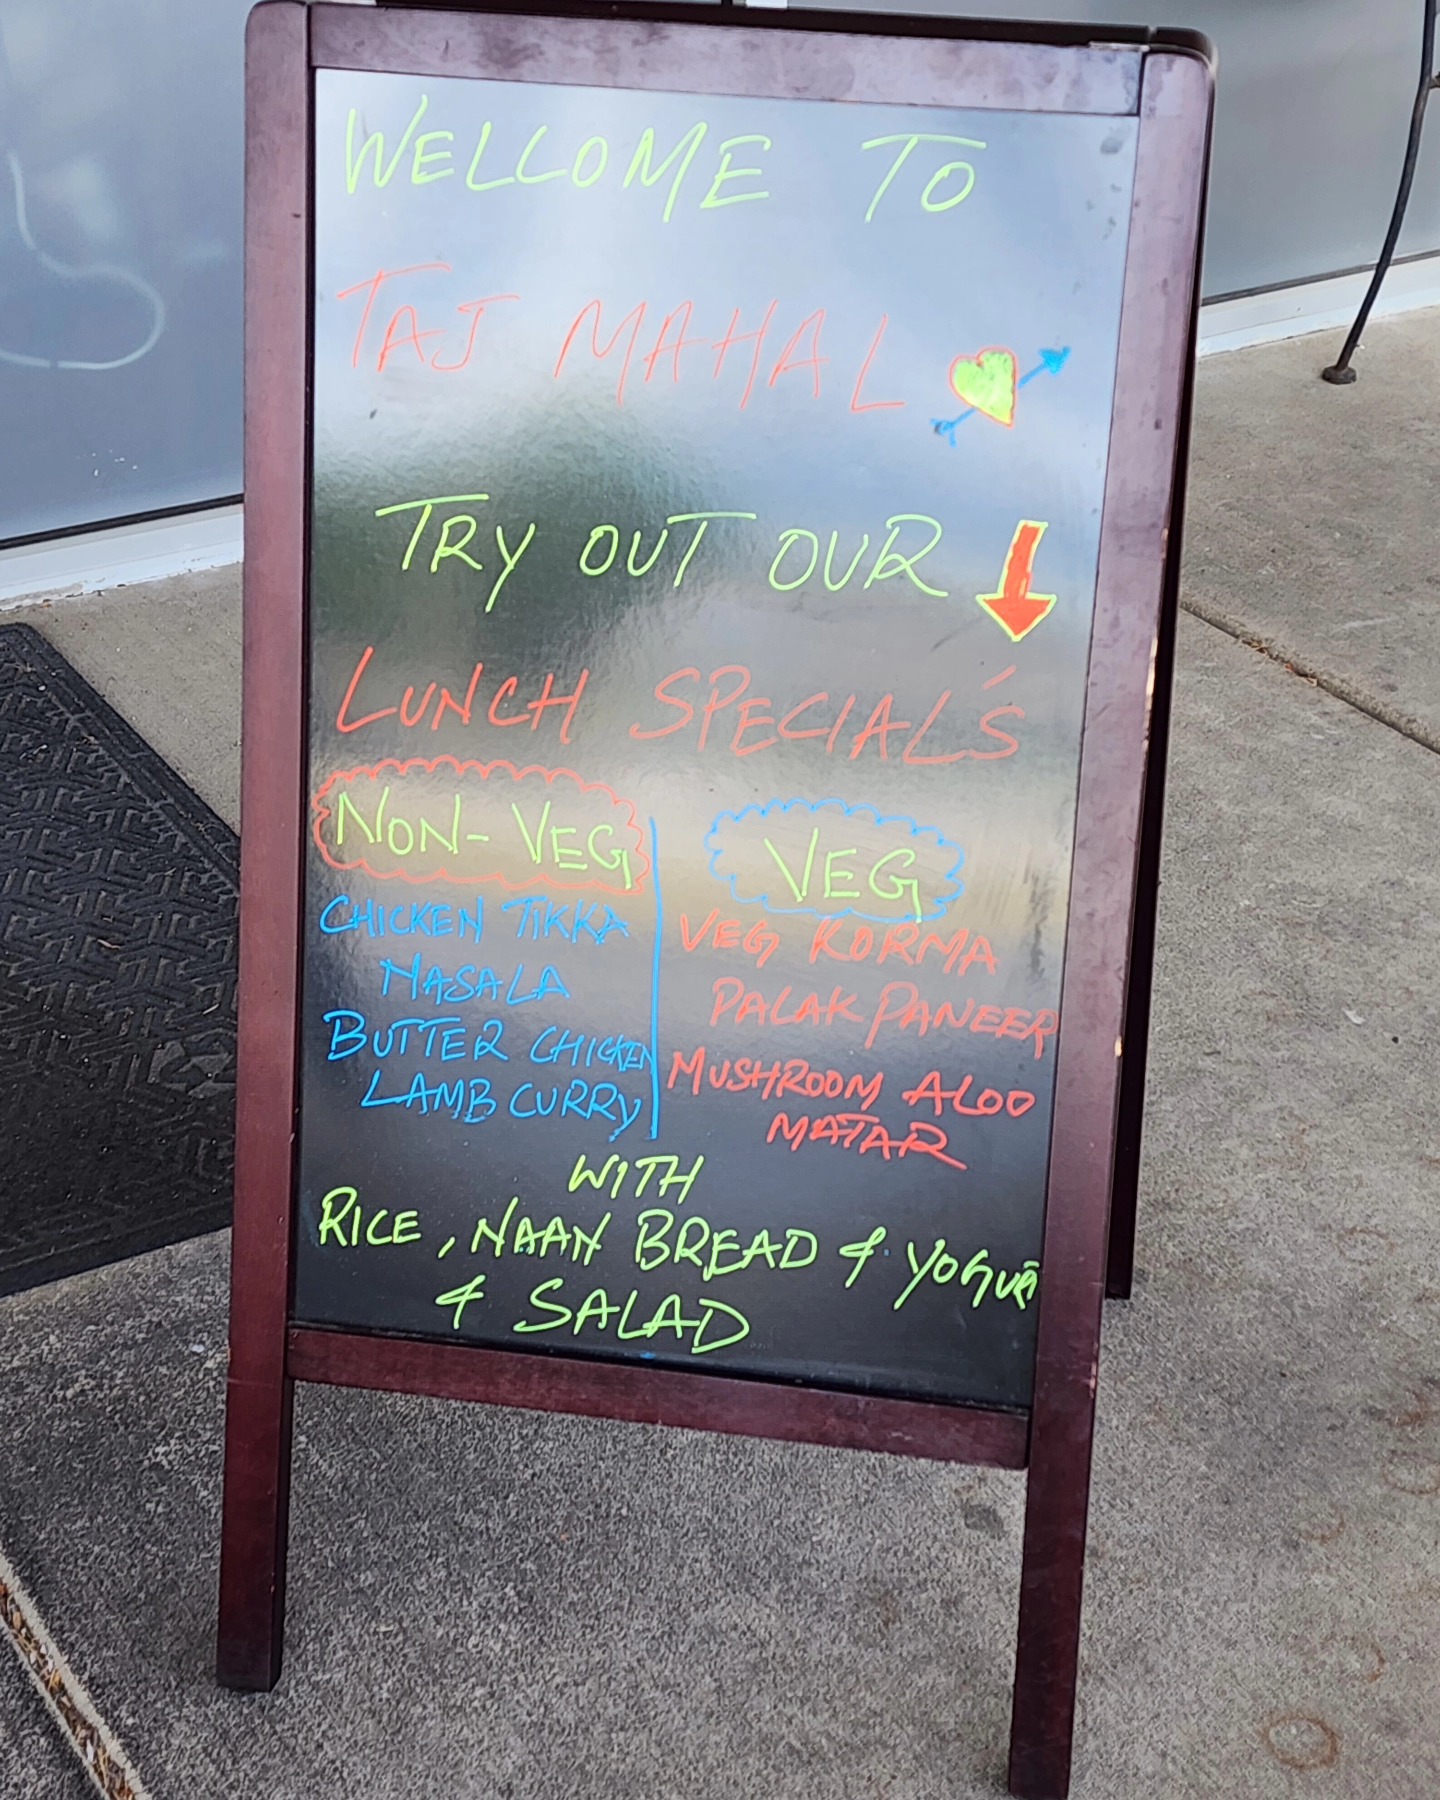 WELCOME TO
TAJ MAHAL
TRY OUT OUR
LUNCH SPECIAL'S
NON-VEG
CHICKEN TIKKA
MASALA
BUTTER CHICKEN
LAMB CURRY
VEG
VEG KORMA
PALAK PANEER
MUSHROOM ALOO
MATAR
WITH
RICE, NAAN BREAD & YOGURT
& SALAD